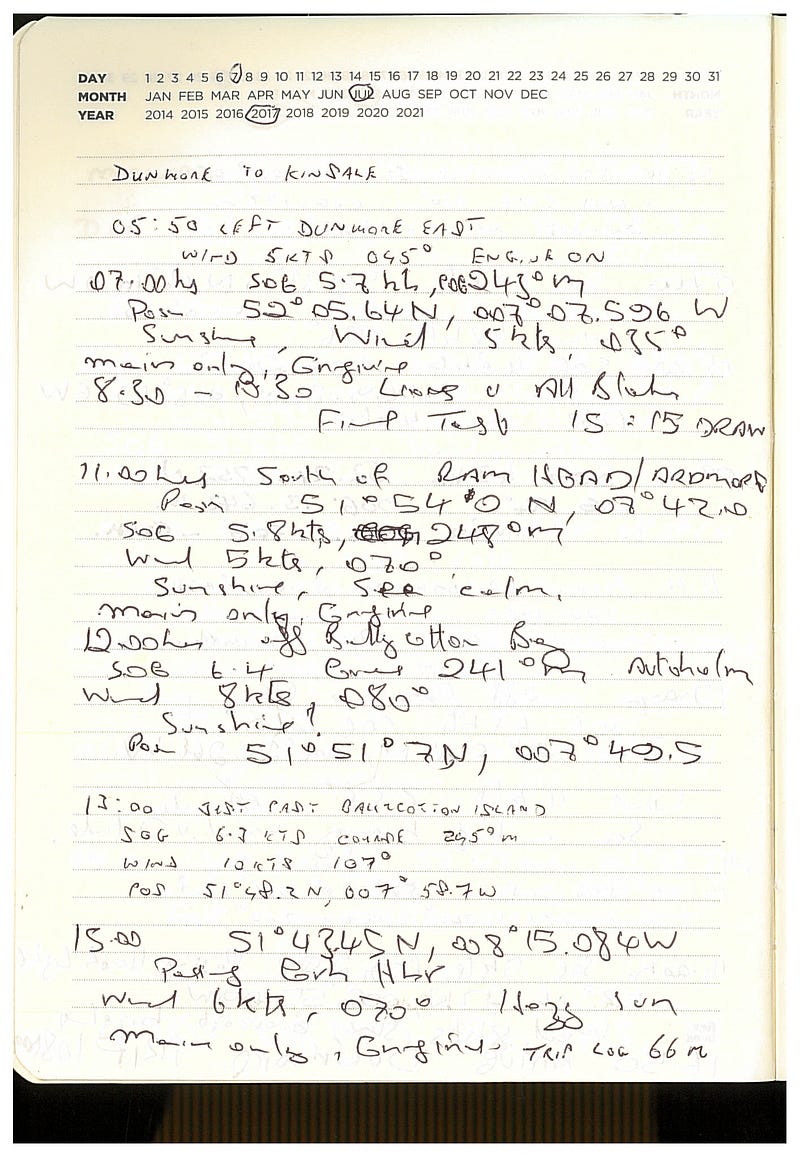 DAY 1 2 3 4 5 6 7 8 9 10 11 12 13 14 15 16 17 18 19 20 21 22 23 24 25 26 27 28 29 30 31
MONTH JAN FEB MAR APR MAY JUN JUL AUG SEP OCT NOV DEC
YEAR 2014 2015 2016 2017 2018 2019 2020 2021
DUNMORE TO KINSALE
05:50 LEFT DUNMORE EAST
WIND 5KTS 045° ENGINE ON
07.00hs SOG 5.7 kts, COG 243°m
Posn 52° 05.64N, 007° 07.596 W
Sunshine, Wind 5 kts, 035°
main only, Engine
8.30 - Lions v All Blacks
Final Test 15 : 15 DRAW
11.00 hrs South of RAM HEAD/ARDMORE
Posn 51° 54°0 N, 07° 42.0
SOG 5.8kts, 248°m
Wind 5 kts, 070°
Sunshine, Sea calm,
main only, Engine
12.00hrs off Ballycotton Bay
SOG 6.4 241°m Autohelm
Wind 8kts, 080°
Sunshine!
Posn 51° 51°7N, 007° 49.5
13:00 JUST PAST BALLYCOTTON ISLAND
SOG 6.3 KTS COURSE 245°m
WIND 10 KTS 107°
POS 51°48.2N, 007° 58.7W
15.00 51°43.45N, 008°15.084W
Passing Cork Hbr
Wind 6kts, 070° Hazy Sun
Main only, Engine. TRIP LOG 66m